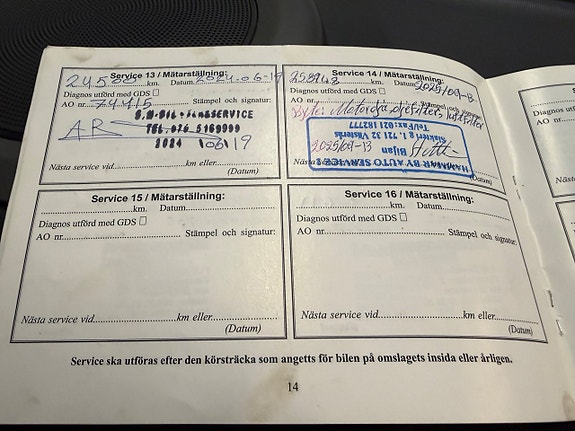 Service 13 / Mätarställning:
24500 km. Datum 2024.06-19
Diagnos utförd med GDS
AO nr. 74415 Stämpel och signatur:
SERVICE
TEL. 076 5169999
AR 2024 06 19
Nästa service vid km eller
(Datum)
Service 14 / Mätarställning:
km. Datum 2025/09-13
Diagnos utförd med GDS
AO nr. Stämpel och signatur:
Byte: Motorolja, oljefilter, luftfilter
HAMMARBY AUTO SERVICE
Bijan
g 1. 721 32 Västerås
Tel/Fax: 021 182777
2025/09-13
Nästa service vid
(Datum)
Service 15 / Mätarställning:
km. Datum
Diagnos utförd med GDS
AO nr. Stämpel och signatur:
Nästa service vid km eller
(Datum)
Service 16 / Mätarställning:
km. Datum
Diagnos utförd med GDS
AO nr. Stämpel och signatur:
Nästa service vid km eller
(Datum)
Service ska utföras efter den körsträcka som angetts för bilen på omslagets insida eller årligen.
14